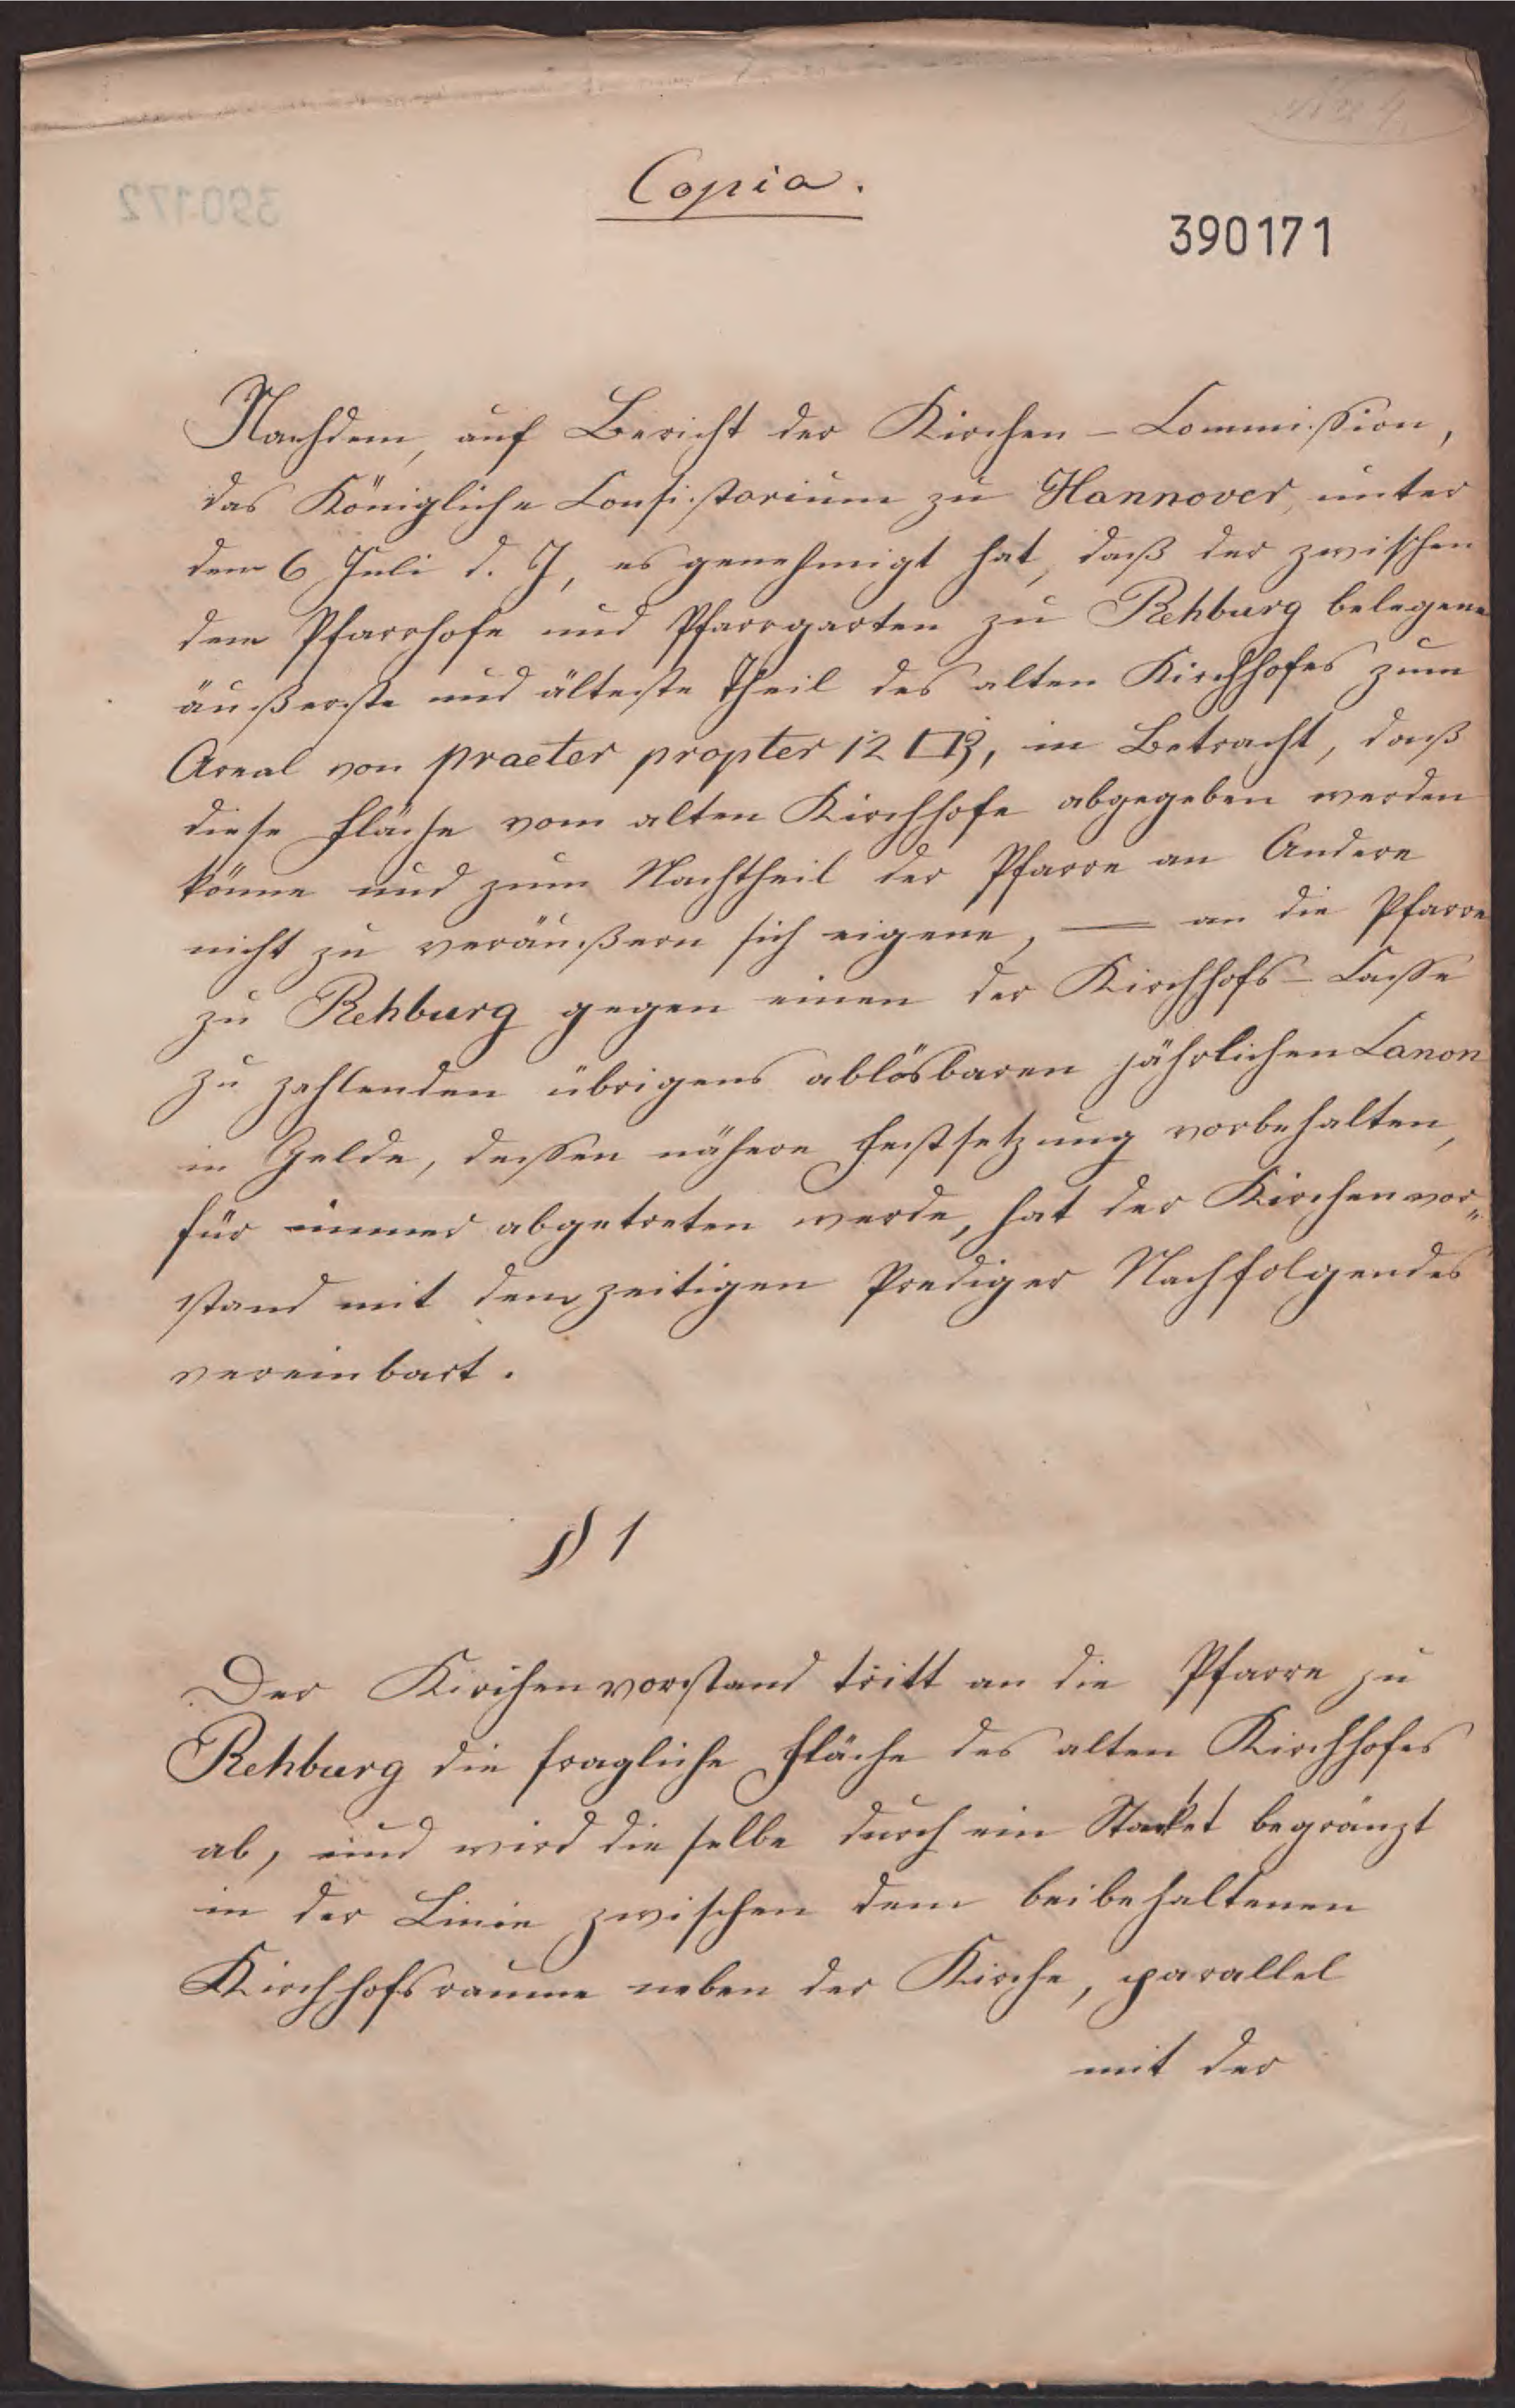 Copia.
390171
Nachdem, auf Bericht der Kirchen-Commission,
das Königliche Consistorium zu Hannover, unter
dem 6 Juli d. J, es genehmigt hat, daß der zwischen
dem Pfarrhofe und Pfarrgarten zu Rehburg belegene
äußerste und älteste Theil des alten Kirchhofes zum
Areal von praeter propter 12 □R, in Betracht, daß
diese Fläche vom alten Kirchhofe abgegeben werden
könne und zum Nachtheil der Pfarre an Andere
nicht zu veräußern sich eigene, — an die Pfarre
zu Rehburg gegen einen der Kirchhofs-Casse
zu zahlenden übrigens ablösbaren jährlichen Canon
in Gelde, dessen nähere Festsetzung vorbehalten,
für immer abgetreten werde, hat der Kirchenvor„
stand mit dem zeitigen Prediger Nachfolgendes
vereinbart.
§ 1
Der Kirchenvorstand tritt an die Pfarre zu
Rehburg die fragliche Fläche des alten Kirchhofes
ab, und wird dieselbe durch ein Stacket begränzt
in der Linie zwischen dem beibehaltenen
Kirchhofsraume neben der Kirche, parallel
mit der